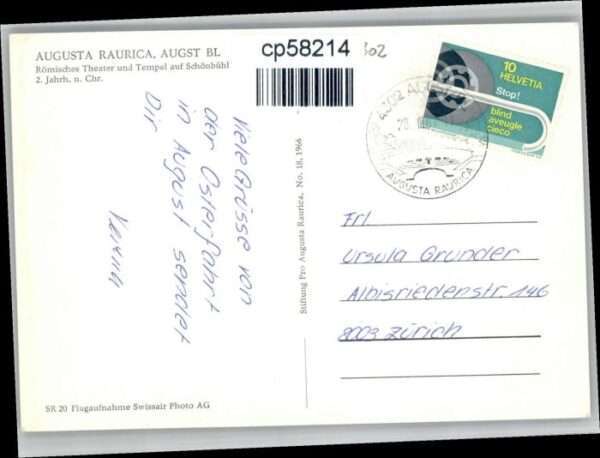 AUGUSTA RAURICA, AUGST BL
Römisches Theater und Tempel auf Schönbühl
2. Jahrh. n. Chr.
cp58214
602
10
HELVETIA
Stop!
blind
aveugle
cieco
4302
AUGUSTA RAURICA
Viele Grüsse von
der Osterfahrt
in August sendet
Dir
Verena
Stiftung Pro Augusta Raurica, No. 18, 1966
Frl.
Ursula Grunder
Albisriederstr. 146
8003 Zürich
SR 20 Flugaufnahme Swissair Photo AG